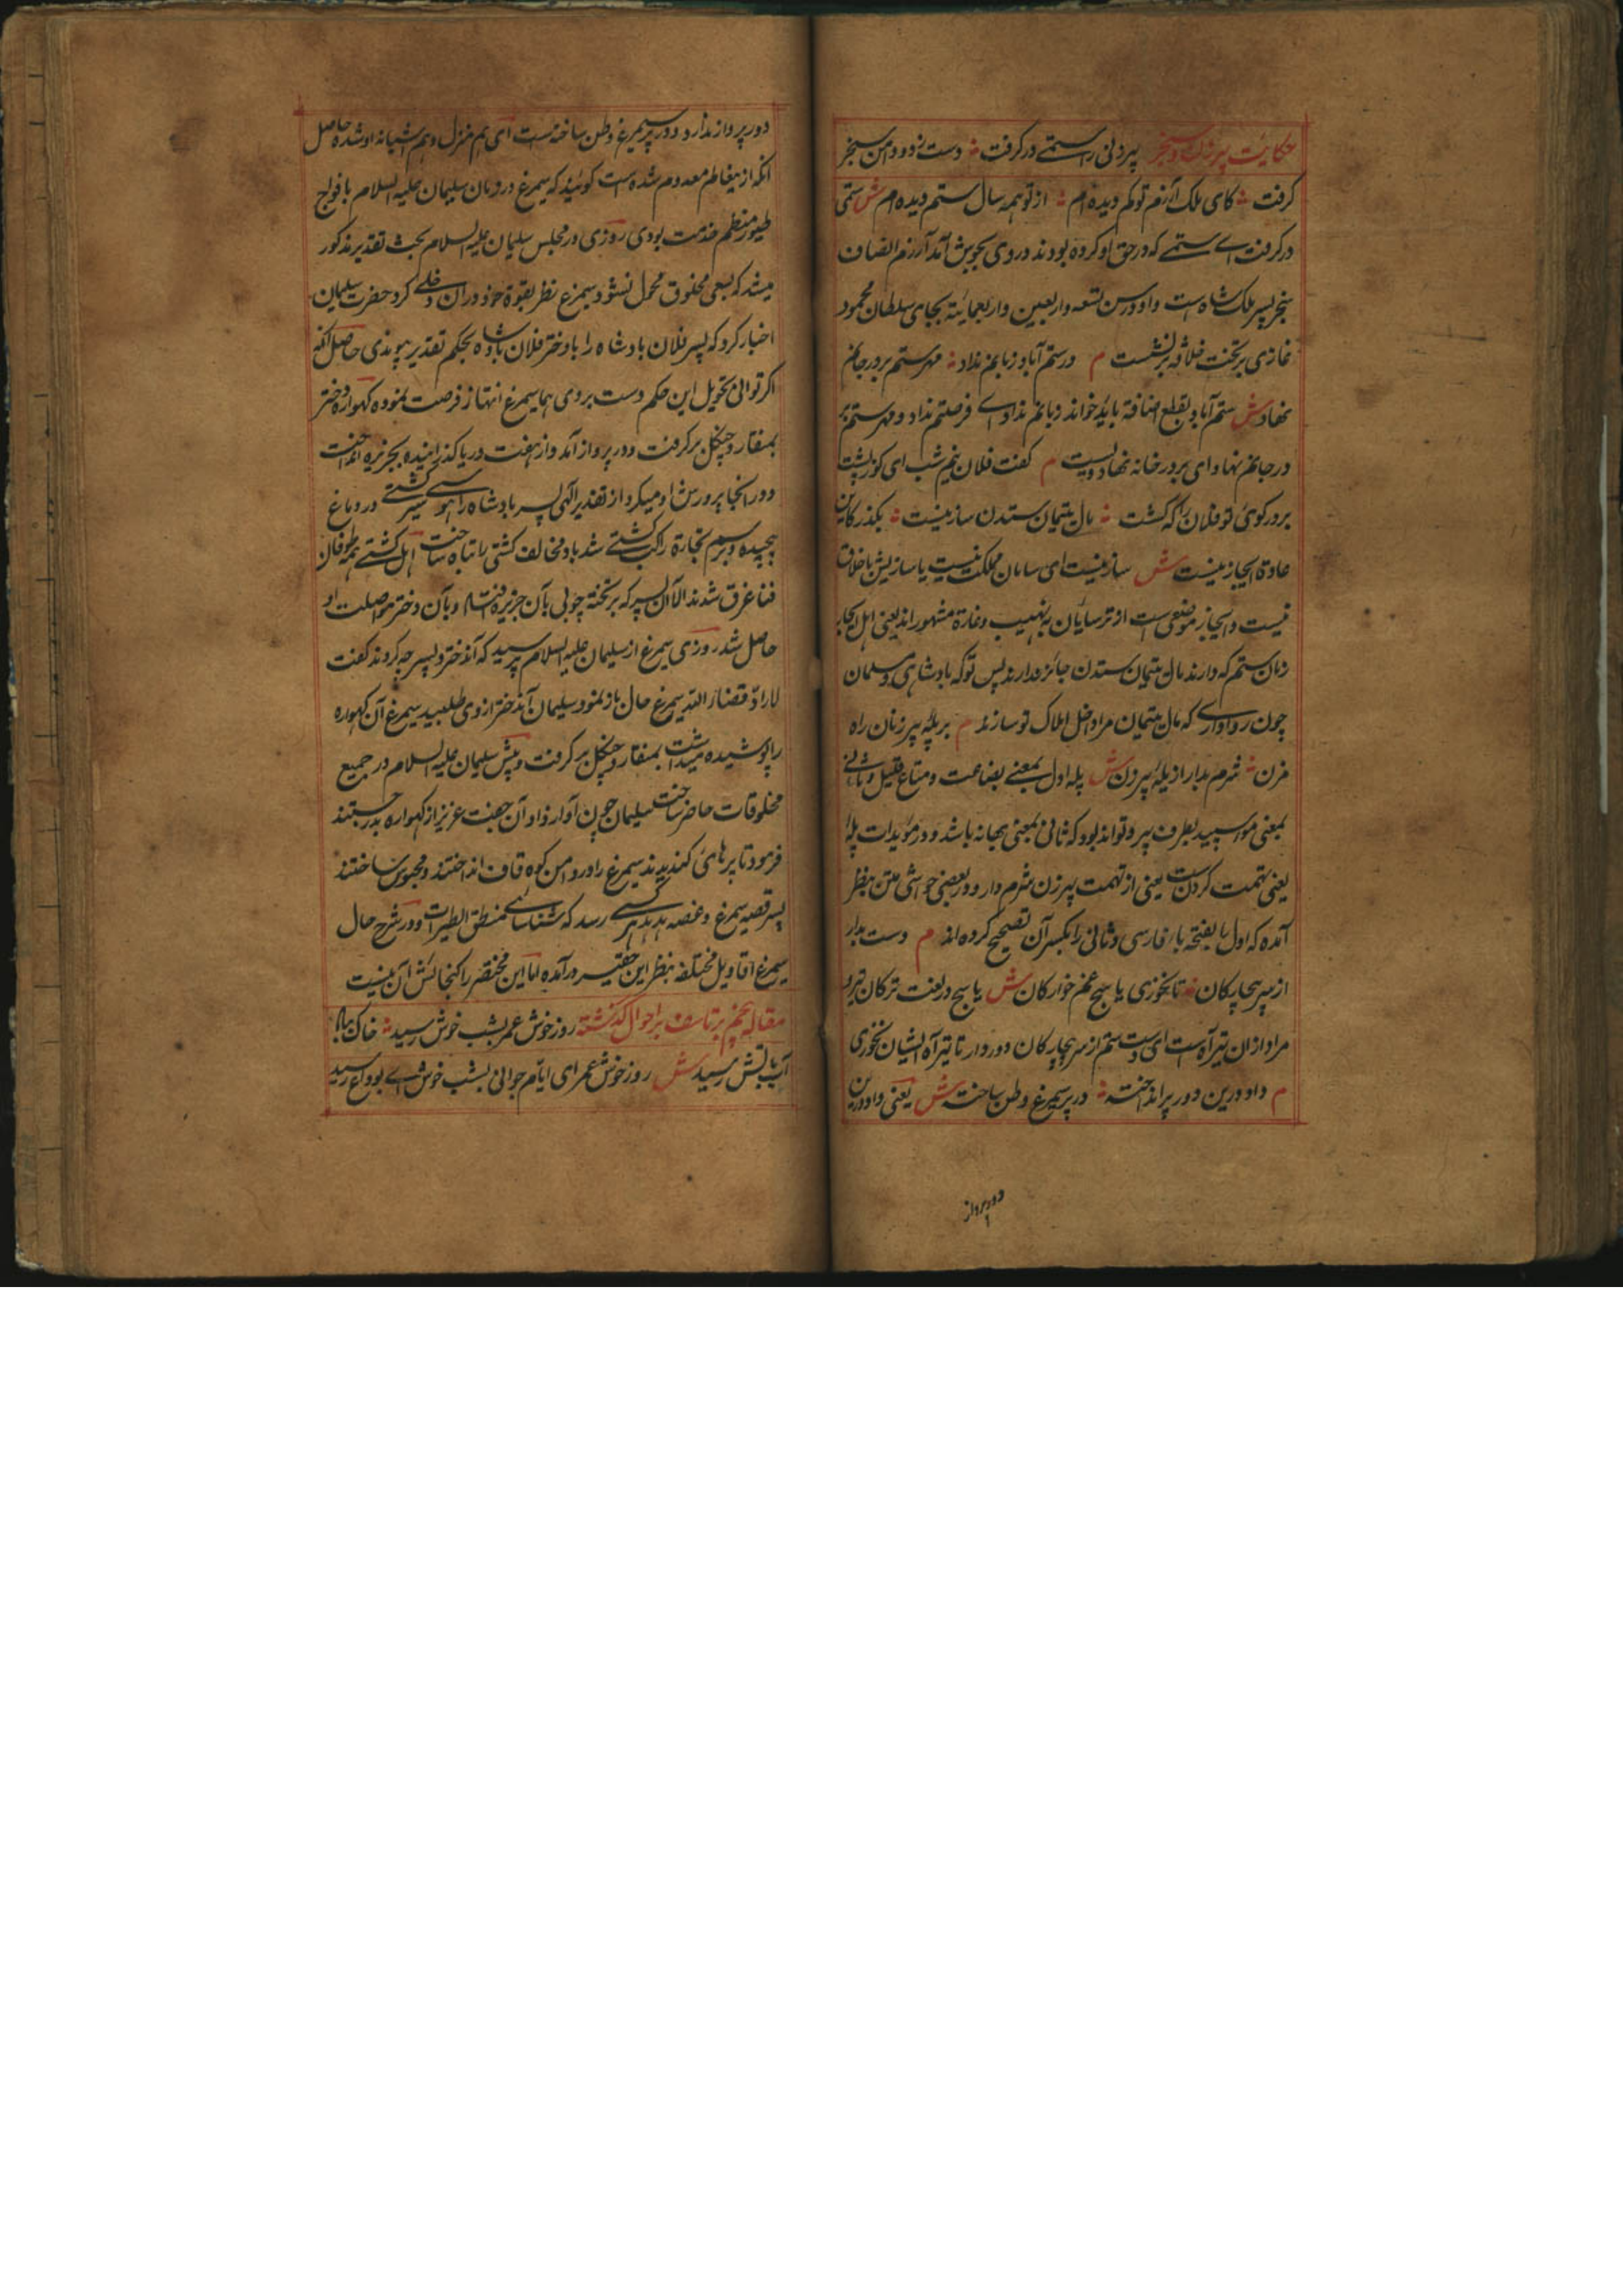 حکایت پیرزن و سنجر پیرزنی را ستمی درگرفت دست زد و دامن سنجر
گرفت کای ملک آزرم تو کم دیده ام از تو همه سال ستم دیده ام ش ستمی
درگرفت اے ستمے که در حق او کرده بودند در وی بجوش آمد آزرم انصاف
سنجر پسر ملک شاه است و او در سن تسعه و اربعین و اربعمایئة بجای سلطان محمود
غازی بر تخت خلافه برنشست م در ستم آباد زبانم نداد مهر ستم بر در جانم
نهاد ش ستم آباد بقطع اضافة باید خواند و بانم نداد اے فرصتم نداد و مهر ستم بر
در جانم نهاد ای بر در خانه نهاد م گفت فلان نیم شب ای کوزپشت
بر در کوی تو فلان را که کشت مال یتیمان ستدن ساز نیست بگذر کاین
عادة ایجاز نیست ش ساز نیست ای سامان مملکت نیست یا ساز پیش با خلاق
نیست و ایجاز موضعی است از ترسایان به نهیب و غارة مشهور اند یعنی اهل ایجاز
زنان ستم که دارند مال یتیمان ستدن جائز ندارند پس تو که بادشاهی و مسلمان
چون روا داری که مال یتیمان مرا داخل املاک تو سازند م بر پلّه پیرزنان راه
مزن شرم بدار از پلهٔ پیرزن ش پله اول بمعنے بضاعت و متاع قلیل و ثانی
بمعنی موی سپید بطرف پیر و تواند بود که ثانی بمعنی بهانه باشد و در مؤیدات پله
یعنی تهمت کردن است یعنی از تهمت پیرزن شرم دار و در بعضی حواشی متن بنظر
آمده که اول را بفتحه باء فارسی و ثانی را بکسر آن تصحیح کرده اند م دست بدار
از سر بیچارگان تا نخوری یاسج غم خوارگان ش یاسج در لغت ترکان تیر و
مراد ازان تیر آه است ای دست ستم از سر بیچارگان دور دار تا تیر آه ایشان نخوری
م داد درین دور برانداخته در پر سیمرغ وطن ساخته ش یعنی داد درین
دور پرواز
دور پرواز ندارد و در پر سیمرغ وطن ساخته است ای هم منزل و هم آشیانه او شده حاصل
انکه از میغالم معدوم شده است گویند که سیمرغ در دوران سلیمان علیه السلام با فواج
طیور منظم خدمت بودی روزی در مجلس سلیمان علیه السلام بحث تقدیر مذکور
میشد که بسعی مخلوق محمل نشود سیمرغ نظر بقوة خود دران دخلے کرد حضرت سلیمان
اخبار کرد که پسر فلان بادشاه را با دختر فلان بادشاه بحکم تقدیر پیوندی حاصل انکه
اگر توانی تحویل این حکم دست بروی نما سیمرغ انتهاز فرصت نموده گهواره دختر
بمنقار و چنگل برگرفت و در پرواز آمد و از هفت دریا گذرانیده بجزیره انداخت
و در آنجا پرورش او میکرد از تقدیر الهی پسر بادشاه را هوس سیر کشتے در دماغ
پیچیده و برسم تجارة راکب کشتے شد باد مخالف کشتی را تباه ساخت اهل کشتے همه طوفان
فنا غرق شدند الا آن پسر که بر تخته چوبی بآن جزیره افتاد و بآن دختر مواصلت او
حاصل شد روزی سیمرغ از سلیمان علیه السلام پرسید که آن دختر و پسر چه کردند گفت
لا رادّ لقضاء الله سیمرغ حال باز نمود سلیمان آن دختر از وی طلبید سیمرغ آن گهواره
را پوشیده میداشت بمنقار و چنگل برگرفت و پیش سلیمان علیه السلام در جمیع
مخلوقات حاضر ساخت سلیمان چون آواز داد آن جفت عزیز از گهواره بدر جستند
فرمود تا پرهای کندیدند سیمرغ را در دامن کوه قاف انداختند و محبوس ساختند
پس قصیه سیمرغ و غصه هدهد هر کسی رسد که شناسای منطق الطیر است و در شرح حال
سیمرغ اقاویل مختلفه بنظر این حقیر درآمده اما این مختصر را گنجائش آن نیست
مقاله پنجم بر تاسف بر احوال گذشته روز خوش عمر بشب خوش رسید خاک بباد
آب بآتش رسید ش روز خوش عمر ای ایام جوانی بشب خوش اے بوداع رسید